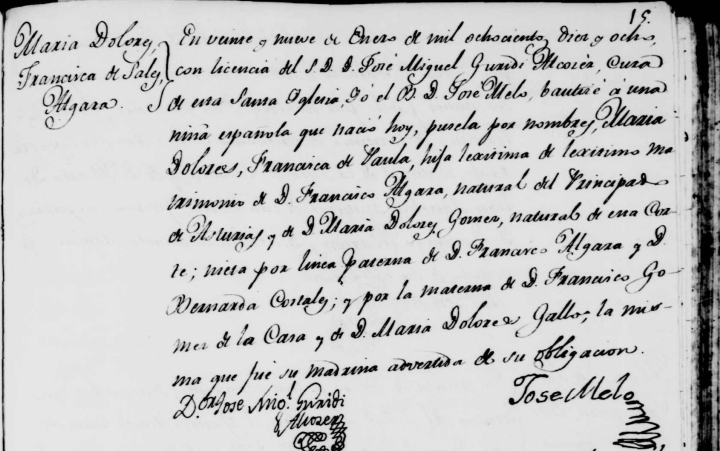 15.
Maria Dolores,
Francisca de Sales
Algara.
En veinte y nueve de Enero de mil ochocientos diez y ocho,
con licencia del S. D. D. José Miguel Guridi Alcozer, cura
de esta Santa Iglesia, Yó el B. D. José Melo, bautizé á una
niña española que nació hoy, pusela por nombres, Maria
Dolores, Francisca de Paula, hija lexitima de lexitimo ma
trimonio de D. Francisco Algara, natural del Principado
de Asturias y de D. Maria Dolores Gomez, natural de esta Cor-
te; nieta por linea paterna de D. Francisco Algara y D.
Bernarda Costales; y por la materna de D. Francisco Go-
mez de la Casa y de D. Maria Dolores Gallo; la mis-
ma que fué su madrina advertida de su obligacion.
Dor. Jose Mig.l Guridi
Alcozer
Jose Melo